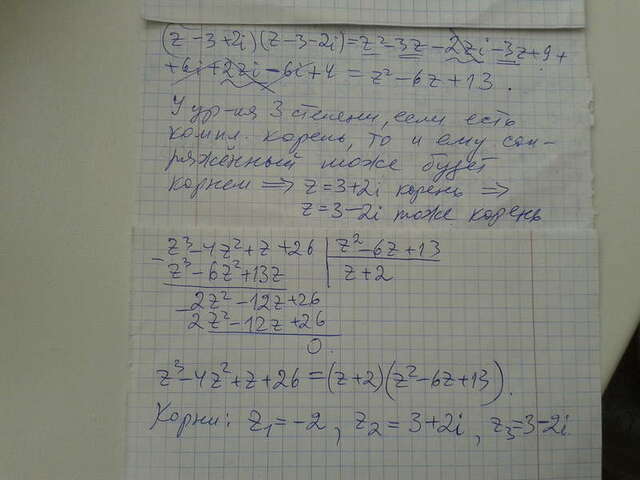 (z-3+2i)(z-3-2i)=z²-3z-2zi-3z+9+
+6i+2zi-6i+4=z²-6z+13.
У ур-ия 3 степени, если есть
компл. корень, то и ему соп-
ряжённый тоже будет
корнем ⇒ z=3+2i корень ⇒
z=3-2i тоже корень
z³-4z²+z+26 | z²-6z+13
- z³-6z²+13z | z+2
2z²-12z+26
- 2z²-12z+26
0.
z³-4z²+z+26=(z+2)(z²-6z+13).
Корни: z₁=-2, z₂=3+2i, z₃=3-2i